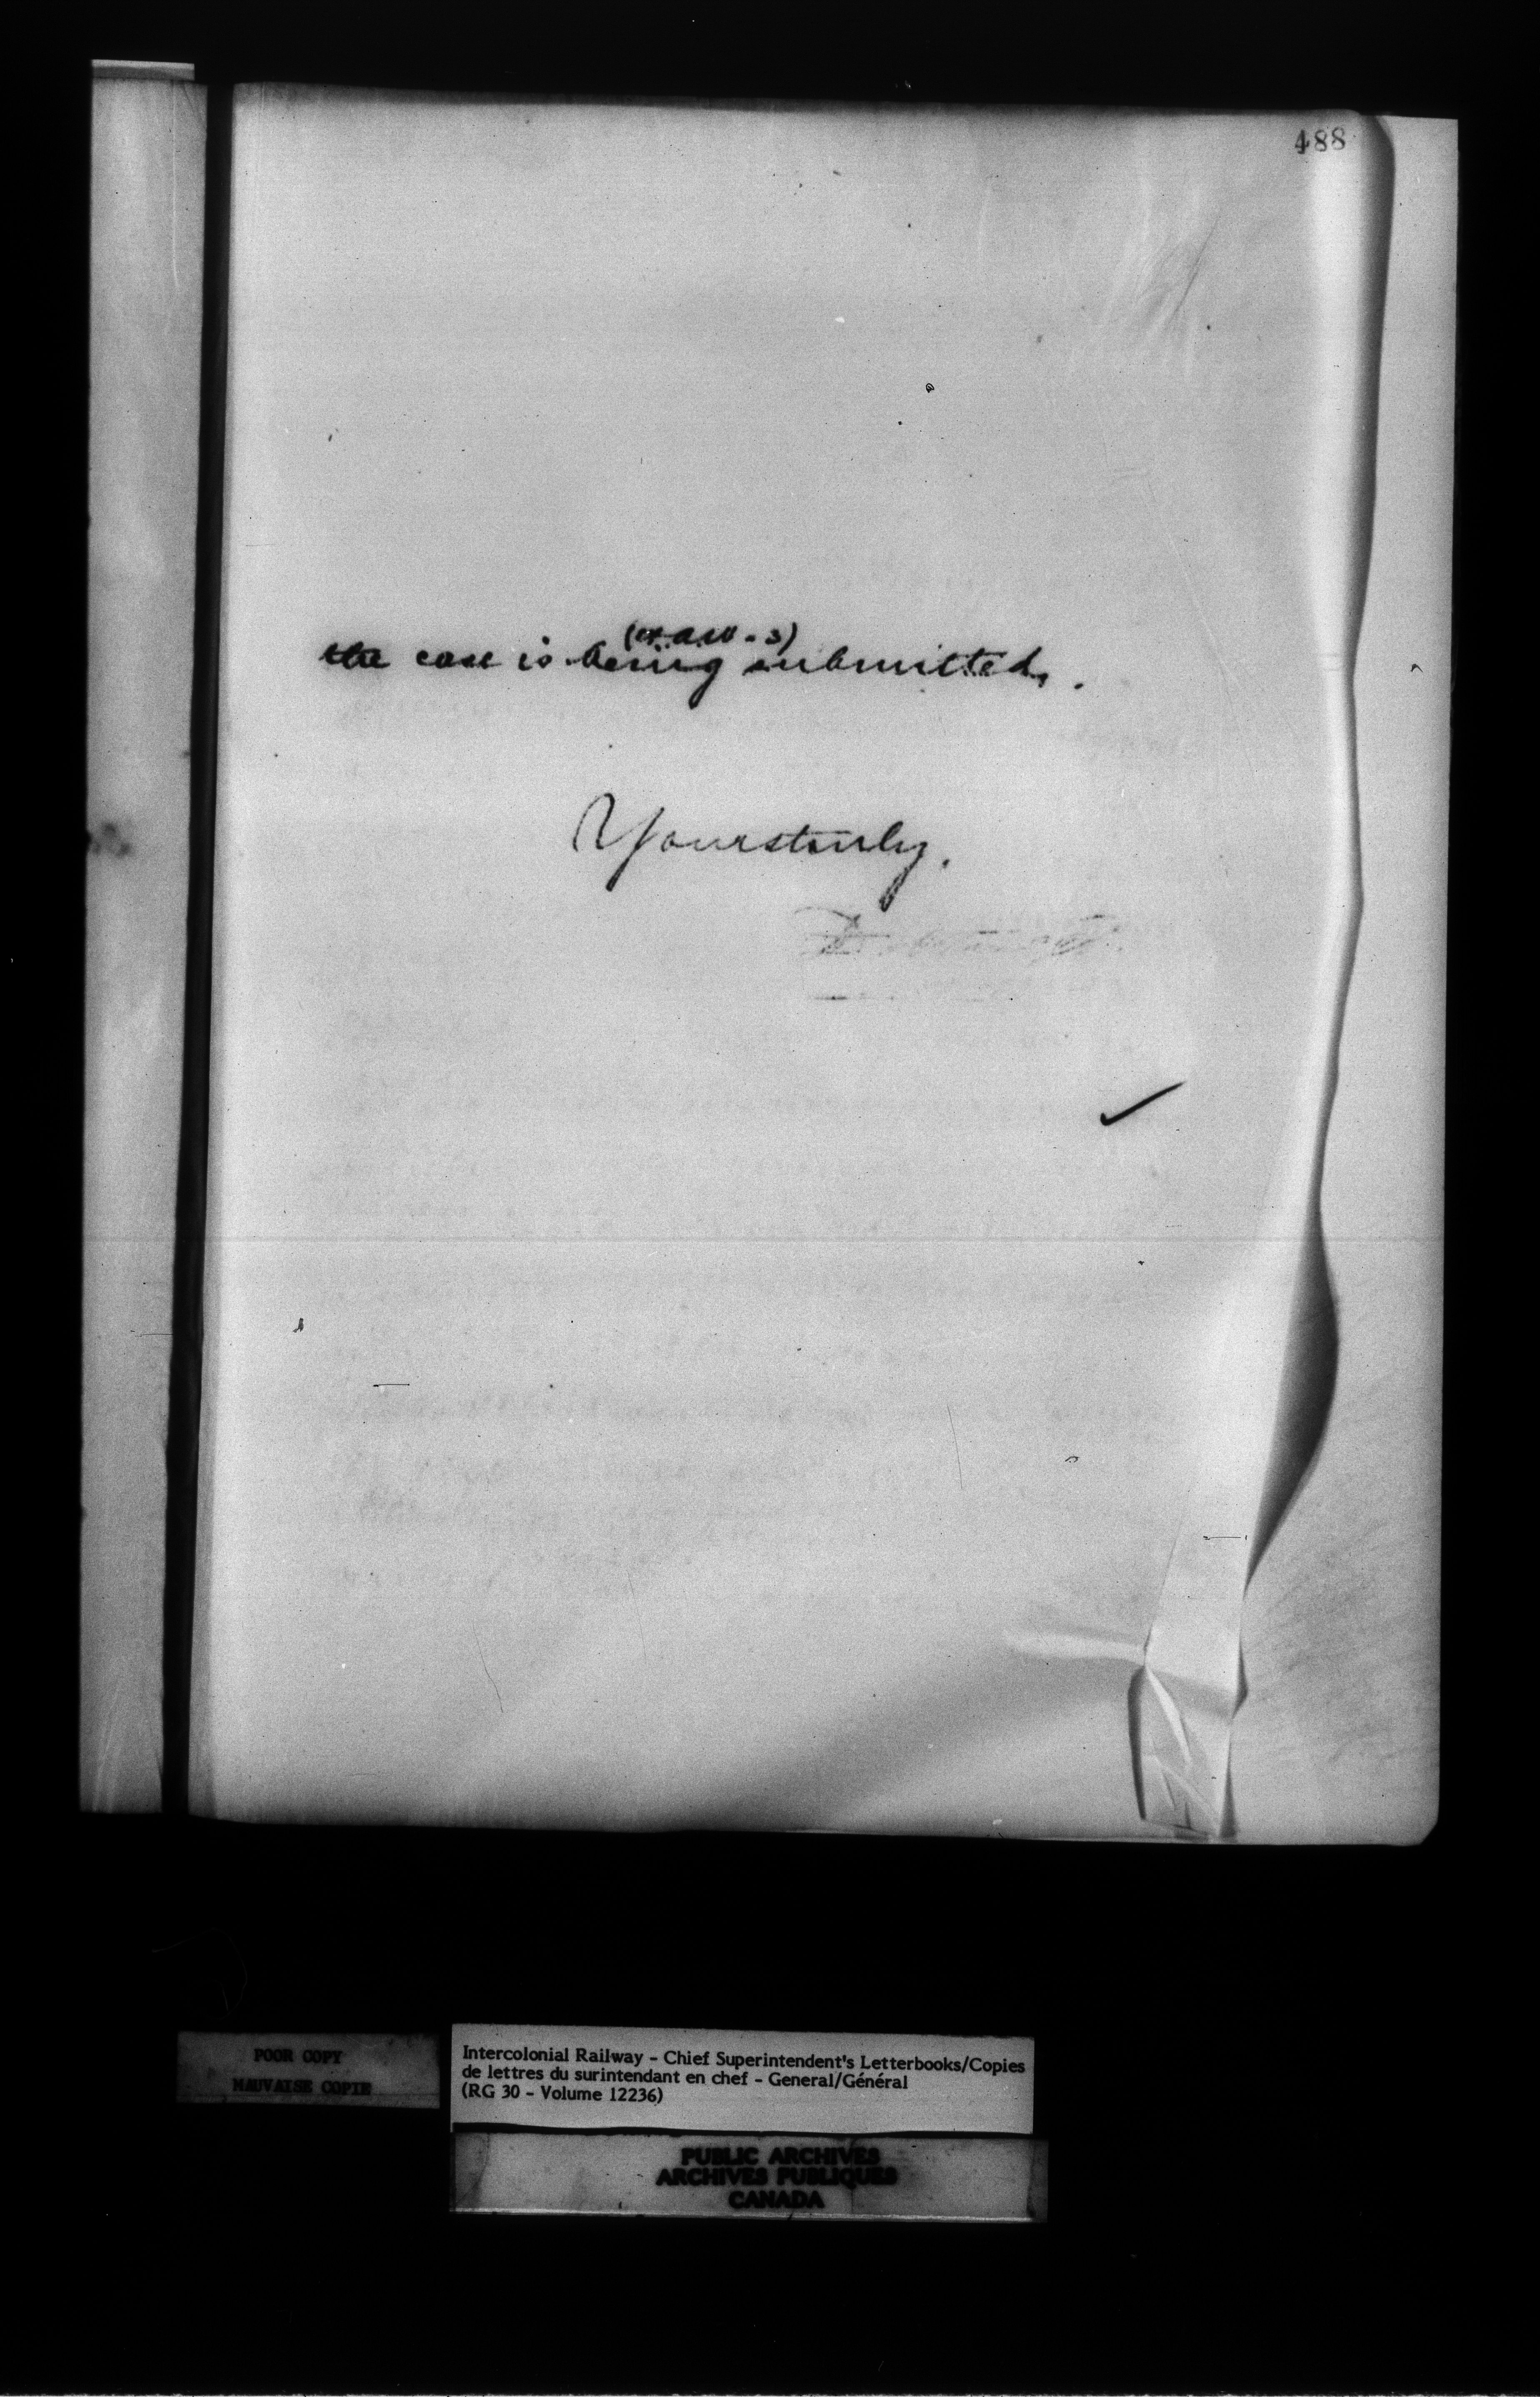 488
the case is being submitted.
Yours truly.
POOR COPY
MAUVAISE COPIE
Intercolonial Railway - Chief Superintendent's Letterbooks/Copies
de lettres du surintendant en chef - General/Général
(RG 30 - Volume 12236)
PUBLIC ARCHIVES
ARCHIVES PUBLIQUES
CANADA